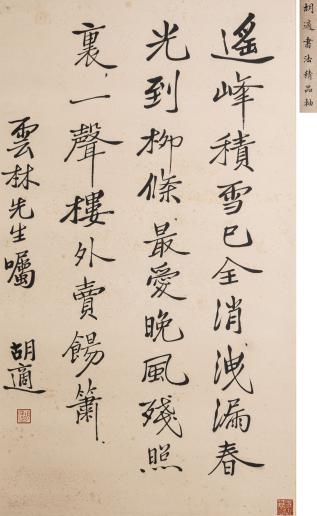 胡適書法精品軸
遙峰積雪已全消洩漏春
光到柳條最愛晚風殘照
裏一聲樓外賣餳簫
雲林先生囑
胡適